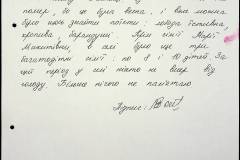 помер, бо це була весна, і вже можна
було щось знайти поїсти: лобода їстівна,
кропива, баранчуки. Крім сім'ї Марії
Микитівни, в селі було ще три
багатодітні сім'ї: по 8 і 10 дітей. За
цей період у селі ніхто не вмер від
голоду. Більше нічого не пам'ятаю.
Підпис: